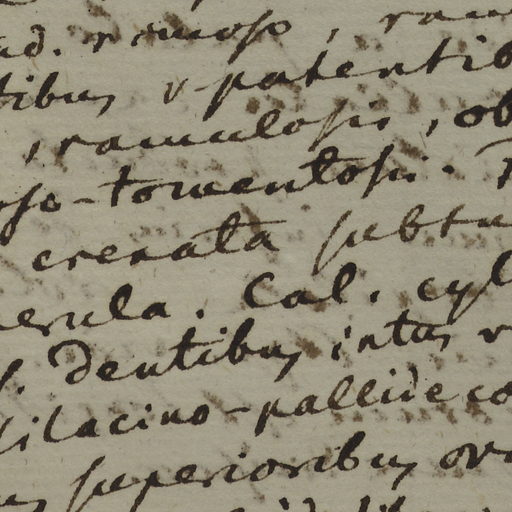 ad. ramoso, ram
tibus v patentib
, ramulosis, ob
ose-tomentosis.
crenata subtu
nerula. Cal. cyl
s. Dentibus intus v
lilacino-pallide co
us superioribus ova